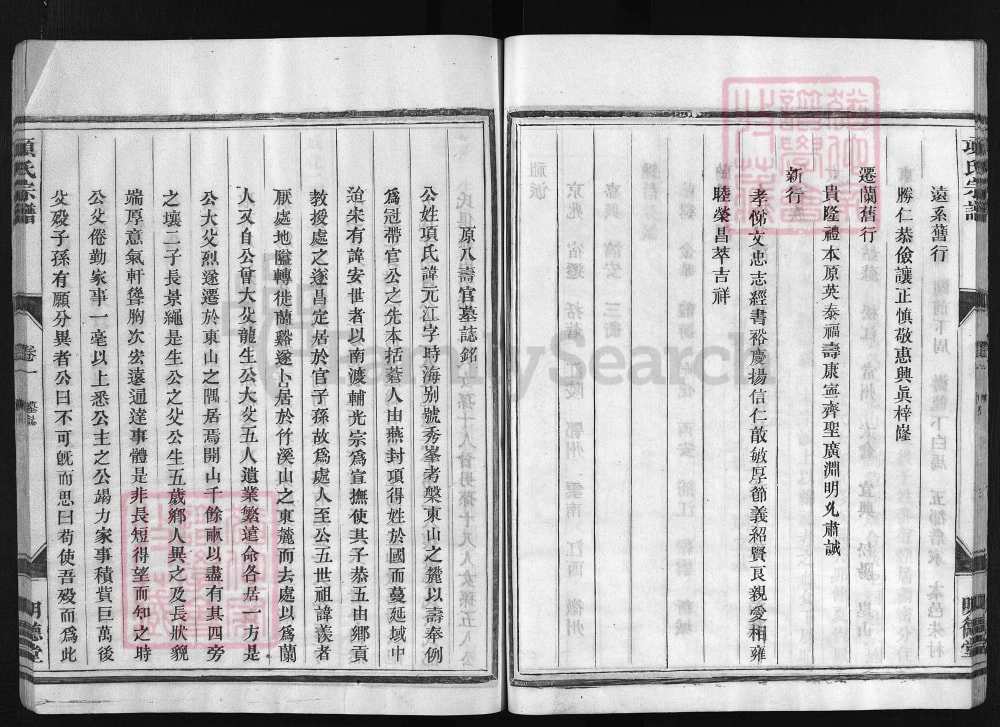 項氏宗譜
遠系舊行
勝仁恭儉讓正愼敬惠興眞梓隆
遷蘭舊行
貴隆禮本原英泰福壽康寧齊聖廣淵明允肅誠
新行
孝悌文忠志經書裕慶揚信仁敢敏厚節義紹賢良親愛相雍
睦榮昌萃吉祥
明德堂
原八壽官墓誌銘
公姓項氏諱元江字時海别號秀峯考槃東山之麓以壽奉例
爲冠帶官公之先本括蒼人由燕封項得姓於國而蔓延域中
迨宋有諱安世者以南渡輔光宗爲宣撫使其子恭五由鄉貢
教授處之遂昌定居於官子孫故爲處人至公五世祖諱羨者
厭處地隘轉徙蘭谿遂卜居於竹溪山之東麓而去處以爲蘭
人又自公曾大父龍生公大父五人遺業繁遠命各居一方是
公大父烈遂遷於東山之隅居焉開山千餘畝以盡有其四旁
之壤二子長景繩是生公之父公生五歲鄉人異之及長狀貌
端厚意氣軒聳胸次宏遠通達事體是非長短得望而知之時
公父倦勤家事一毫以上悉公主之公竭力家事積貲巨萬後
父歿子孫有願分異者公曰不可既而思曰苟使吾歿而爲此
項氏宗譜
卷一
墓誌
明德堂
FamilySearch